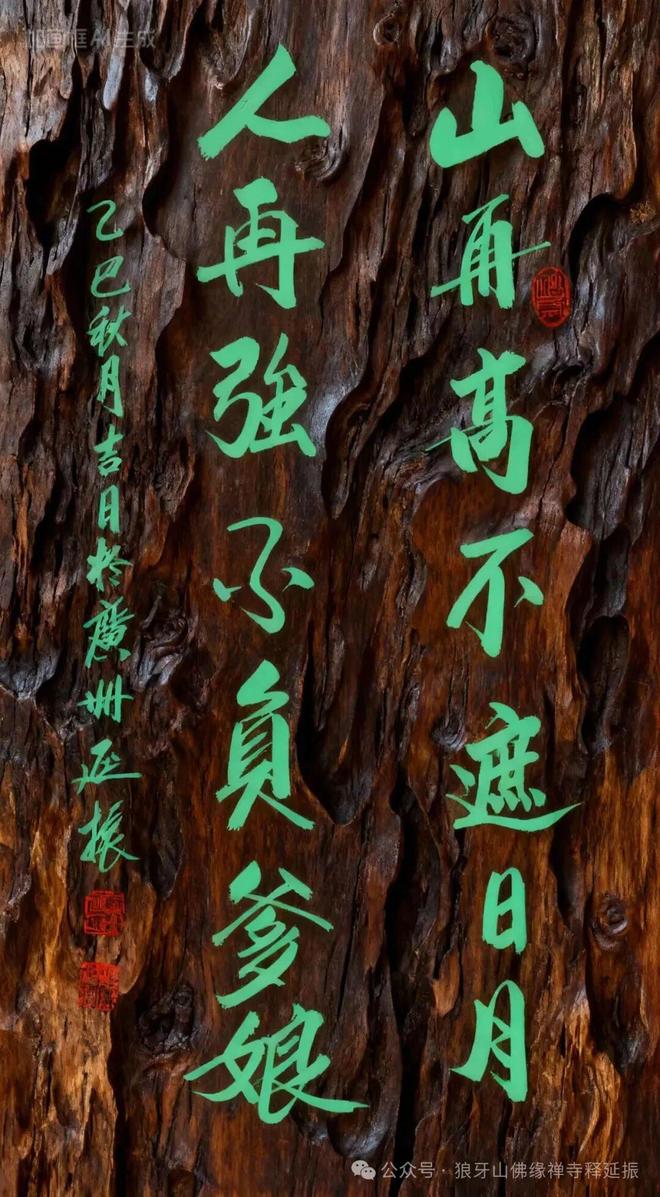 山再高不遮日月
人再強不負爹娘
乙巳秋月吉日於廣州延振
公众号·狼牙山佛缘禅寺释延振